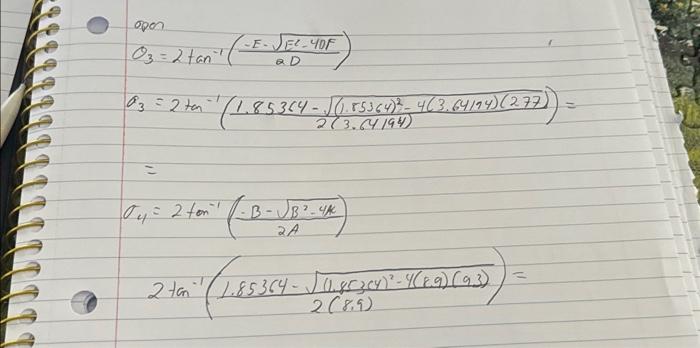 open
θ3 = 2 tan⁻¹ ((-E - √(E² - 4DF)) / 2D)
θ3 = 2 tan⁻¹ ((1.85364 - √((1.85364)² - 4(3.64194)(2.77))) / 2(3.64194)) =
=
θ4 = 2 tan⁻¹ ((-B - √(B² - 4AC)) / 2A)
2 tan⁻¹ ((1.85364 - √((1.85364)² - 4(8.9)(9.3))) / 2(8.9)) =